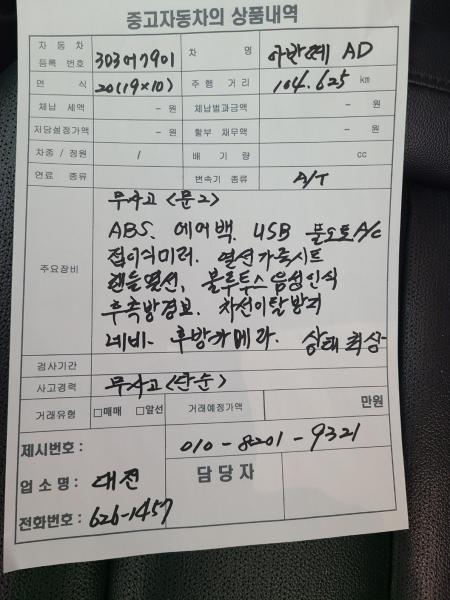 중고자동차의 상품내역
자동차 등록번호 303어7901 차명 아반떼 AD
연식 20(19×10) 주행거리 104.625 km
체납세액 - 원 체납벌과금액 - 원
저당설정가액 - 원 할부 채무액 - 원
차종/정원 / 배기량 cc
연료 종류 변속기 종류 A/T
주요장비
무사고<문2>
ABS. 에어백. USB 풀오토A/C
접이식미러. 열선가죽시트
핸들열선, 블루투스음성인식
후측방경보. 차선이탈방지
네비. 후방카메라. 상태최상
검사기간
사고경력 무사고<단순>
거래유형 □매매 □알선 거래예정가액 만원
제시번호: 010-8201-9321
업소명: 대전 담당자
전화번호: 626-1457